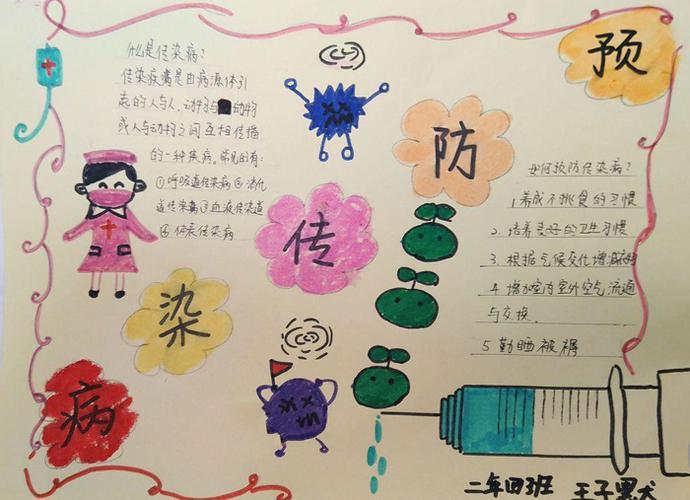 预
防
传
染
病
什么是传染病?
传染疾病是由病源体引
起的人与人、动物与动物
或人与动物之间互相传播
的一种疾病。常见的有:
①呼吸道传染病②消化
道传染病③血液传染道
④体表传染病
如何预防传染病?
1.养成不挑食的习惯
2. 培养良好的卫生习惯
3. 根据气候变化增减
4 增加室内室外空气流通
与交换.
5 勤晒被褥
二年四班 王子